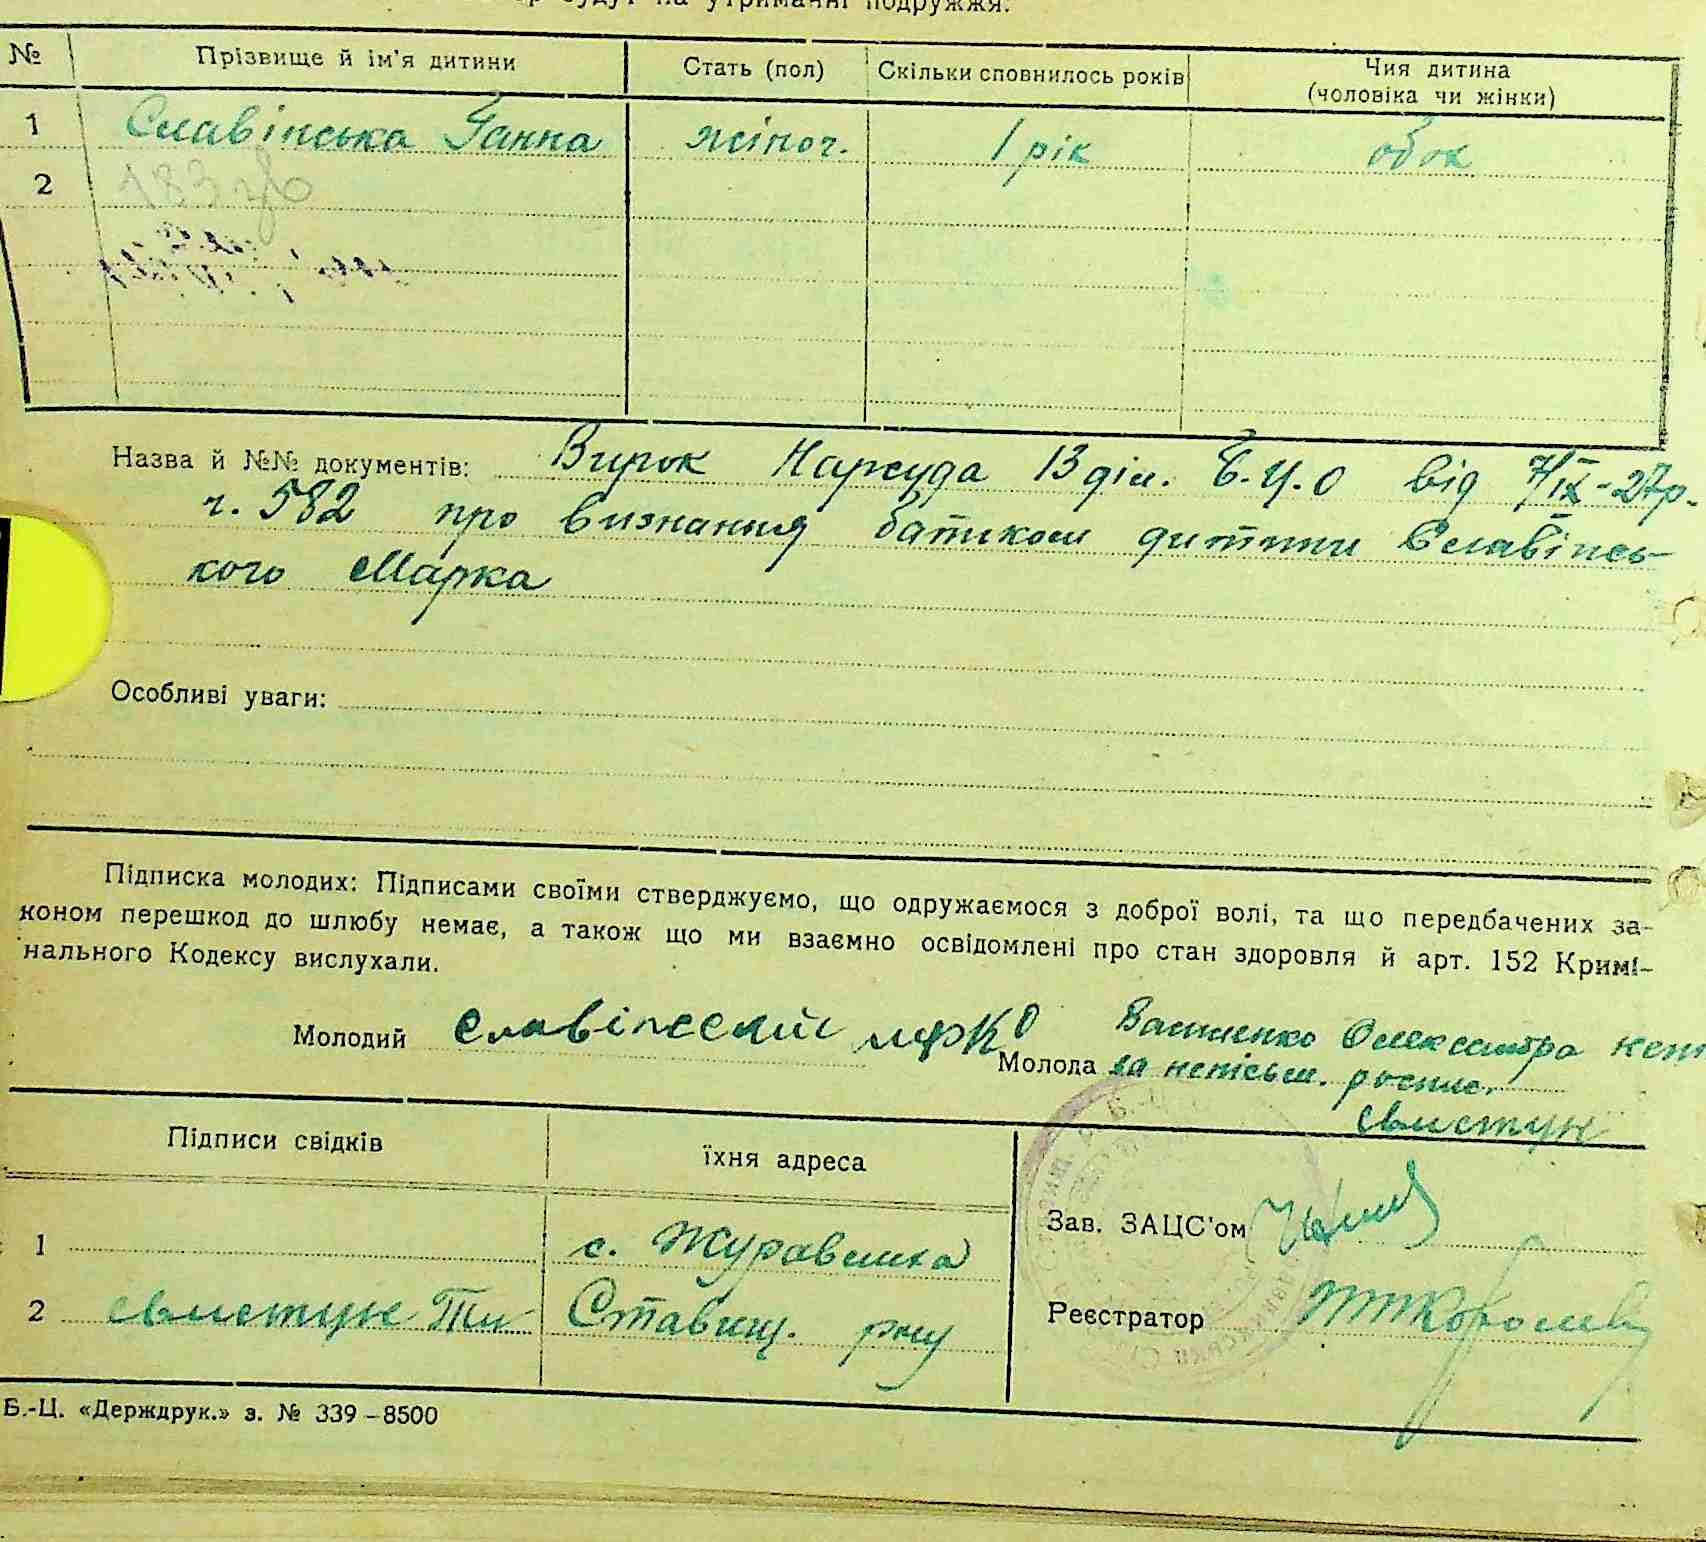 будут на утриманні подружжя.
№ Прізвище й ім'я дитини Стать (пол) Скільки сповнилось років Чия дитина (чоловіка чи жінки)
1 Славінська Ганна жіноч. 1 рік обох
2
Назва й №№ документів: Вирок Нарсуда 13 діл. Б.Ц.О від 7/IX-27р.
ч. 582 про визнання батьком дитини Славінсь-
кого Марка
Особливі уваги:
Підписка молодих: Підписами своїми стверджуємо, що одружаємося з доброї волі, та що передбачених за-
коном перешкод до шлюбу немає, а також що ми взаємно освідомлені про стан здоровля й арт. 152 Кримі-
нального Кодексу вислухали.
Молодий Славінский Молода Олександра
за неписьм. роспис.
Свистун
Підписи свідків їхня адреса
Зав. ЗАЦС'ом
1 с. Журавлиха
2 Свистун Ти Ставищ. рну
Реєстратор
Б.-Ц. «Держдрук.» з. № 339-8500